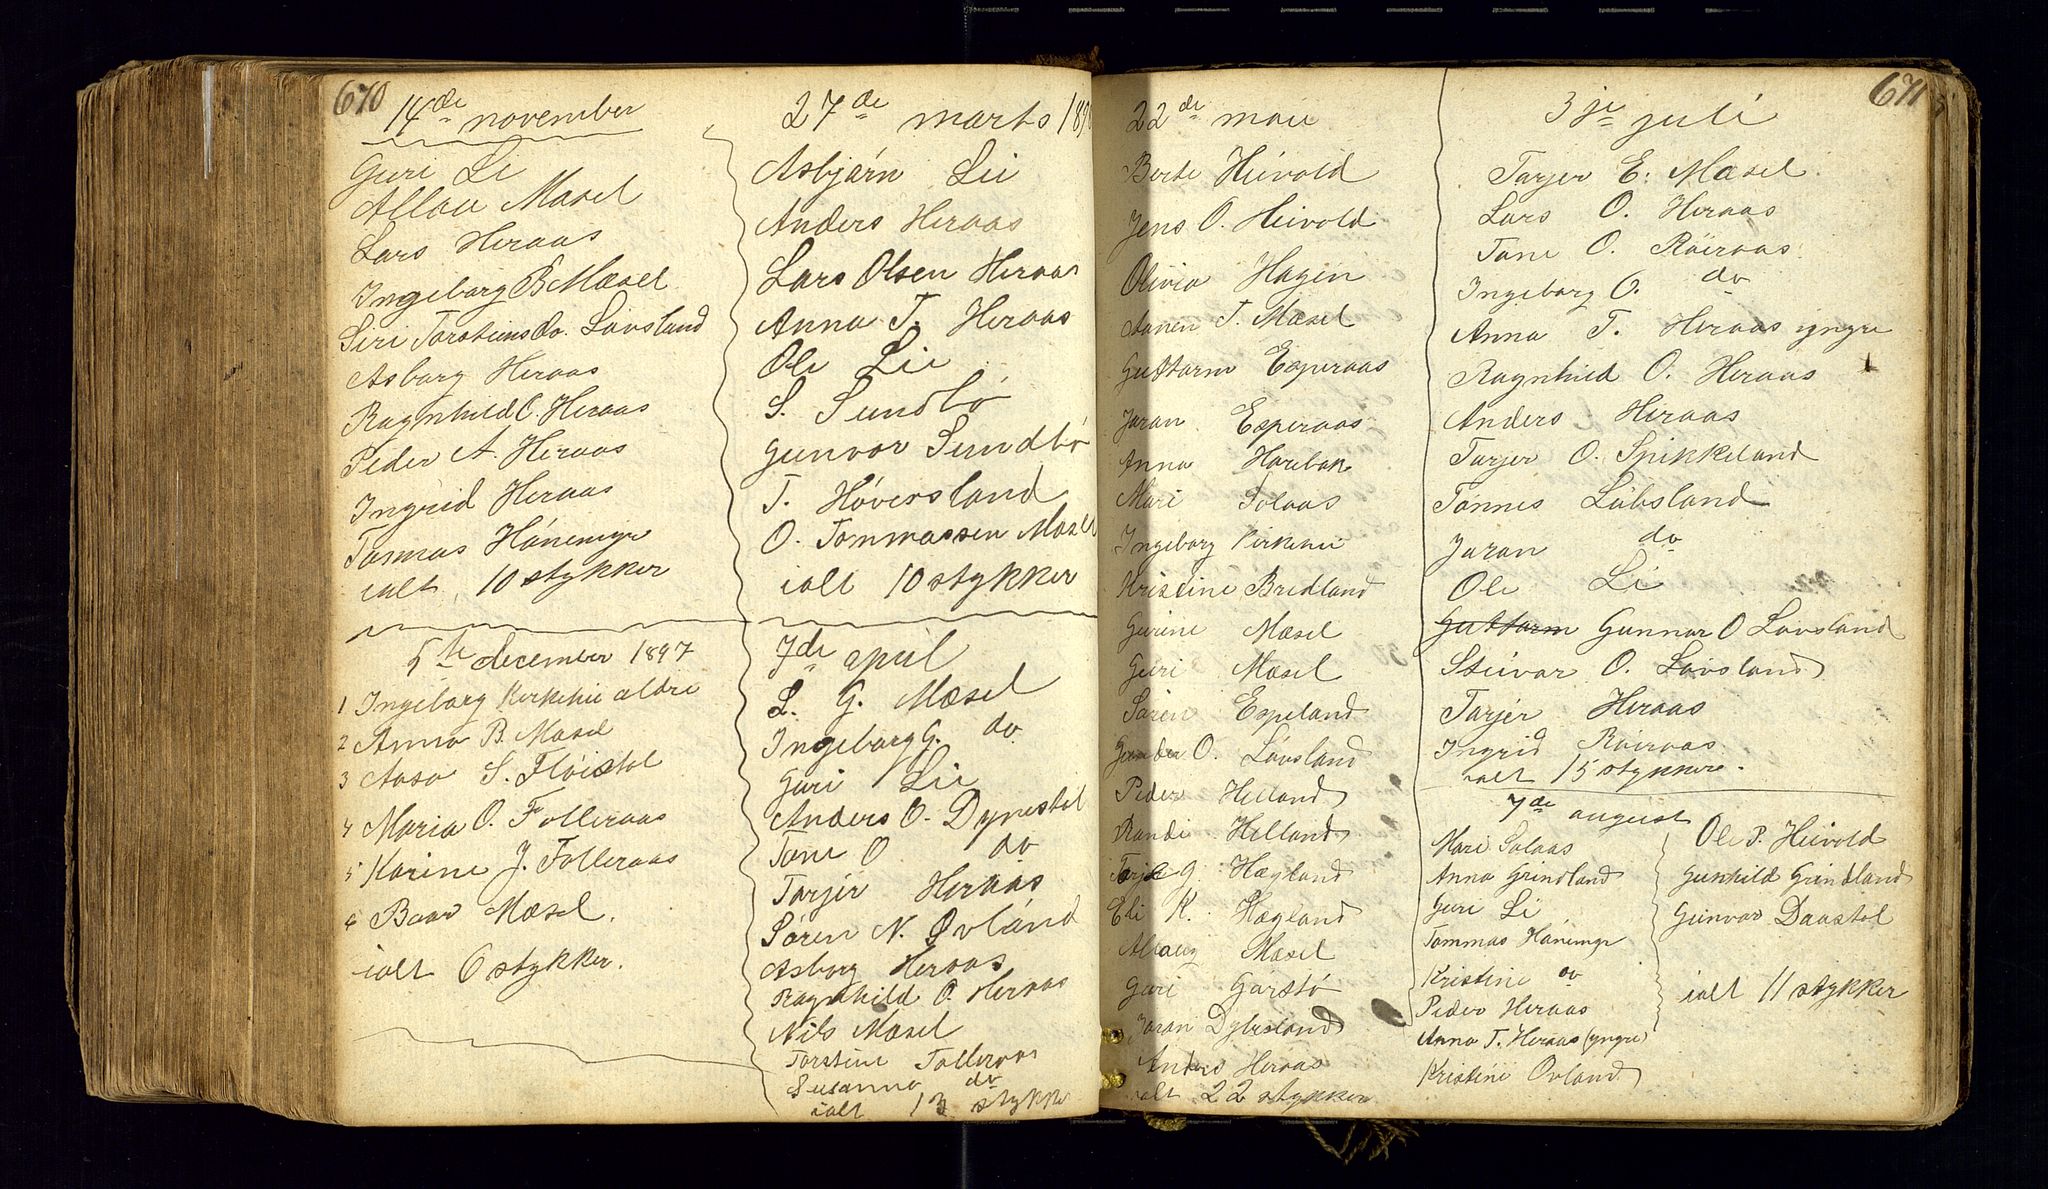 670
14de november
Guri Li
Allau Mæsel
Lars Heraas
Ingeborg B Mæsel
Siri Torsteinsdo. Løvsland
Asborg Heraas
Ragnhild O. Heraas
Peder A. Heraas
Ingrid Heraas
Tommas Hónemyr
ialt 10 stykker
5te december 1897
1 Ingeborg Kirkehei ældre
2 Anna B. Mæsel
3 Aaso S. Flóistøl
4 Maria O. Folleraas
5 Karine J. Folleraas
6 Baar Mæsel.
ialt 6 stykker.
27de marts
Asbjórn Lii
Anders Heraas
Lars Olsen Heraas
Anna T. Heraas
Ole Lie
S. Sundbó
Gunvor Sundbó
T. Hóversland
O. Tommassen Mæsel
ialt 10 stykker
7de april
L. G. Mæsel
Ingeborg G. do
Guri Lie
Anders O. Dynestøl
Tone O do
Tarjer Heraas
Sóren N. Øvland
Asborg Heraas
Ragnhild O. Heraas
Nils Mæsel
Torstine Folleraas
Susanna do
ialt 13 stykker
22de mai
Berte Heivold
Jens O. Heivold
Olivia Hagen
Aanen T. Mæsel
Guttorm Esperaas
Joran Esperaas
Anna Harebak
Mari Solaas
Ingeborg Kirkehei
Kristine Bredland
Gurine Mæsel
Guri Mæsel
Sóren Espeland
Gunder O. Lóvsland
Peder Helland
Randi Helland
Tarje G. Hægland
Eli K. Hægland
Mæsel
Guri
Joran
Anders Heraas
ialt 22 stykker
671
3je juli
Tarjer E. Mæsel
Lars O. Heraas
Tone O. Róiraas
Ingeborg O. do
Anna T. Heraas yngre
Ragnhild O. Heraas
Anders Heraas
Tarjer O. Spikkeland
Tónnes Lóbsland
Joran do
Ole Li
Guttorm Gunnar O Lóvsland
Steinar O. Lóvsland
Tarjer Heraas
Ingrid Róiraas
ialt 15 stykker.
7de august
Mari Solaas
Anna Grindland
Guri Li
Tommas Hónemyr
Kristine do
Peder Heraas
Anna T. Heraas (yngre)
Kristine Ovland
Ole P. Heivold
Gunhild Grindland
Gunvor Daastøl
ialt 11 stykker